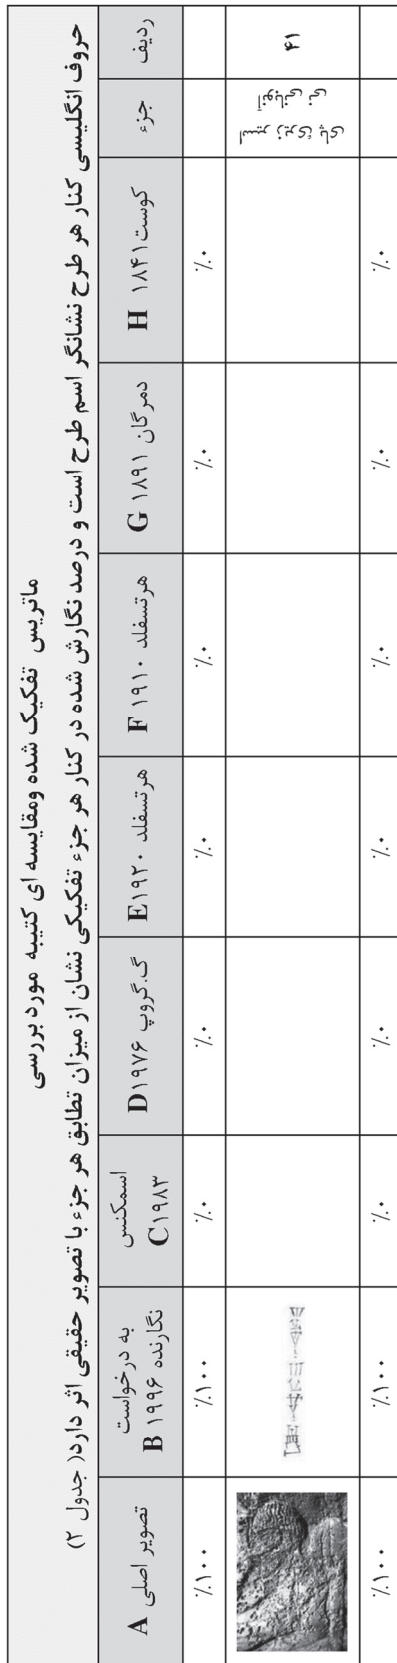 ماتریس تفکیک شده ومقایسه ای کتیبه مورد بررسی
حروف انگلیسی کنار هر طرح نشانگر اسم طرح است و درصد نگارش شده در کنار هر جزء تفکیکی نشان از میزان تطابق هر جزء با تصویر حقیقی اثر دارد( جدول ۲)
ردیف
جزء
کوست ۱۸۴۱ H
دمرگان ۱۸۹۱ G
هرتسفلد ۱۹۱۰ F
هرتسفلد ۱۹۲۰ E
گ.گروپ ۱۹۷۶ D
اسمکنس
C ۱۹۸۳
به درخواست
نگارنده ۱۹۹۶ B
تصویر اصلی A
٪۰
٪۰
٪۰
٪۰
٪۰
٪۰
٪۱۰۰
٪۱۰۰
۴۱
اسیر زیری پای
آنوبانی نی
٪۰
٪۰
٪۰
٪۰
٪۰
٪۰
٪۱۰۰
٪۱۰۰